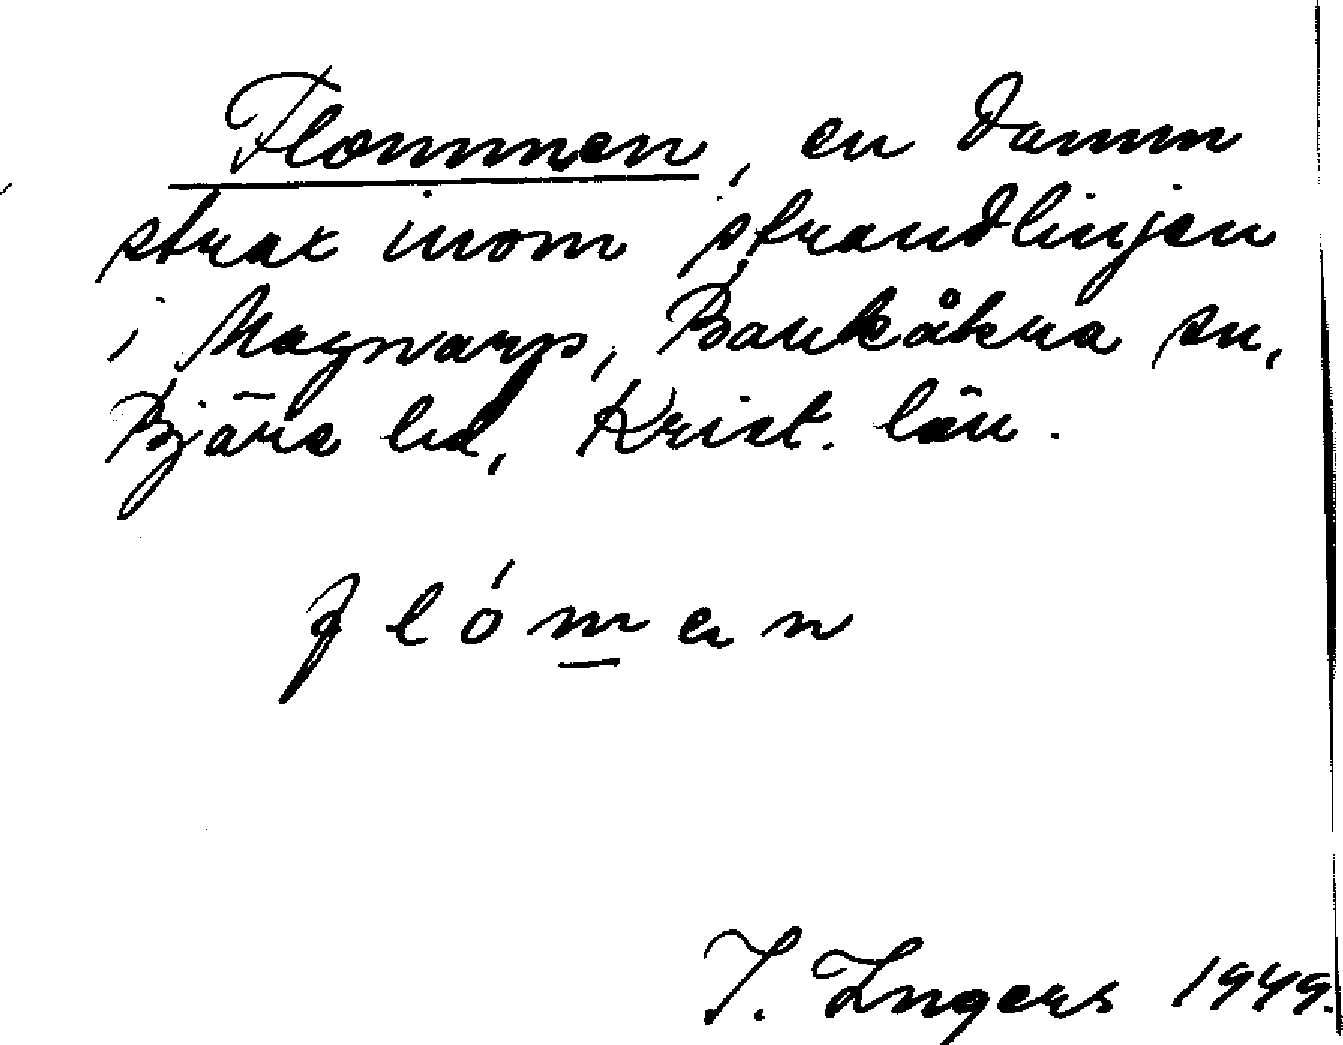 Flommen, en damm
strax inom strandlinjen
i Magnarp, Barkåkra sn,
Bjäre hd, Krist. län.
flóm̲en
I. Ingers 1949.